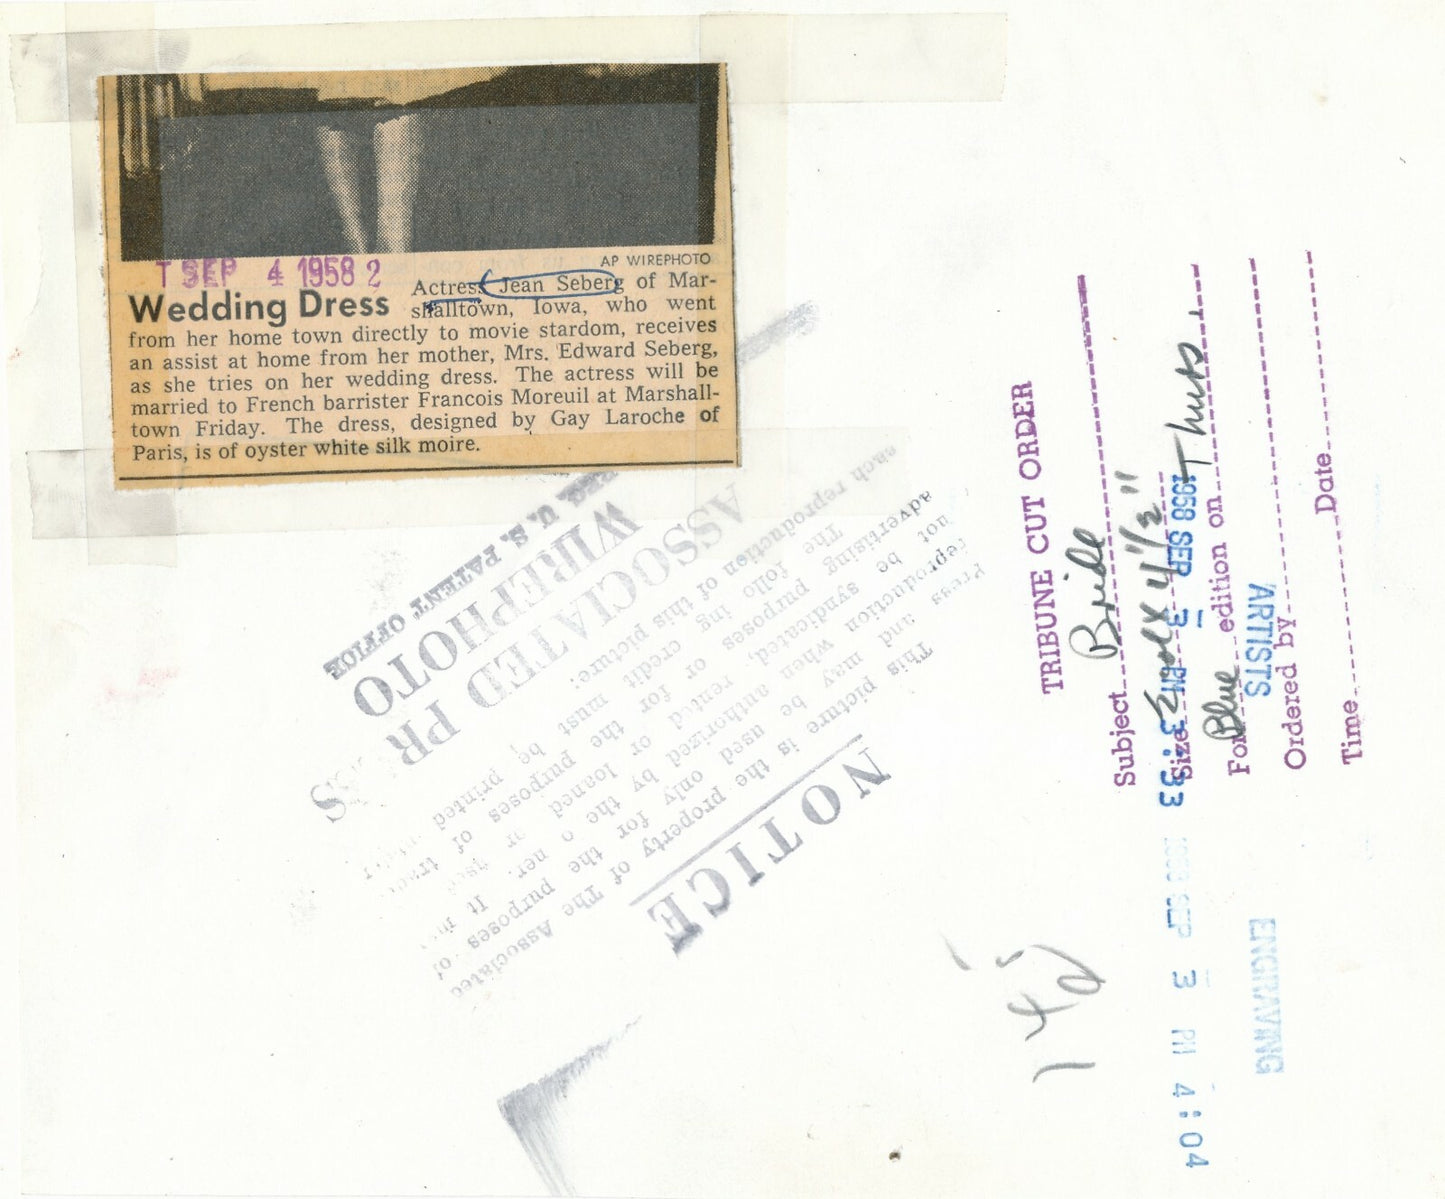 T SEP 4 1958 2
AP WIREPHOTO
Wedding Dress
Actress Jean Seberg of Mar-
shalltown, Iowa, who went
from her home town directly to movie stardom, receives
an assist at home from her mother, Mrs. Edward Seberg,
as she tries on her wedding dress. The actress will be
married to French barrister Francois Moreuil at Marshall-
town Friday. The dress, designed by Gay Laroche of
Paris, is of oyster white silk moire.
NOTICE
This picture is the property of The Associated
Press and may be used only for the purposes of
reproduction when authorized by the
not be syndicated, rented or loaned or used
advertising purposes or for the purposes of
The follo ing credit must be printed
each reproduction of this picture:
ASSOCIATED PR S
WIREPHOTO
REG U. S. PATENT OFFICE
TRIBUNE CUT ORDER
Subject Bride
Size 2 col x 4 1/2"
1958 SEP 3 PM 3:33
For Blue edition on Thurs
ARTISTS
Ordered by
Time Date
SEP 3 PM 4:04
ENGRAVING